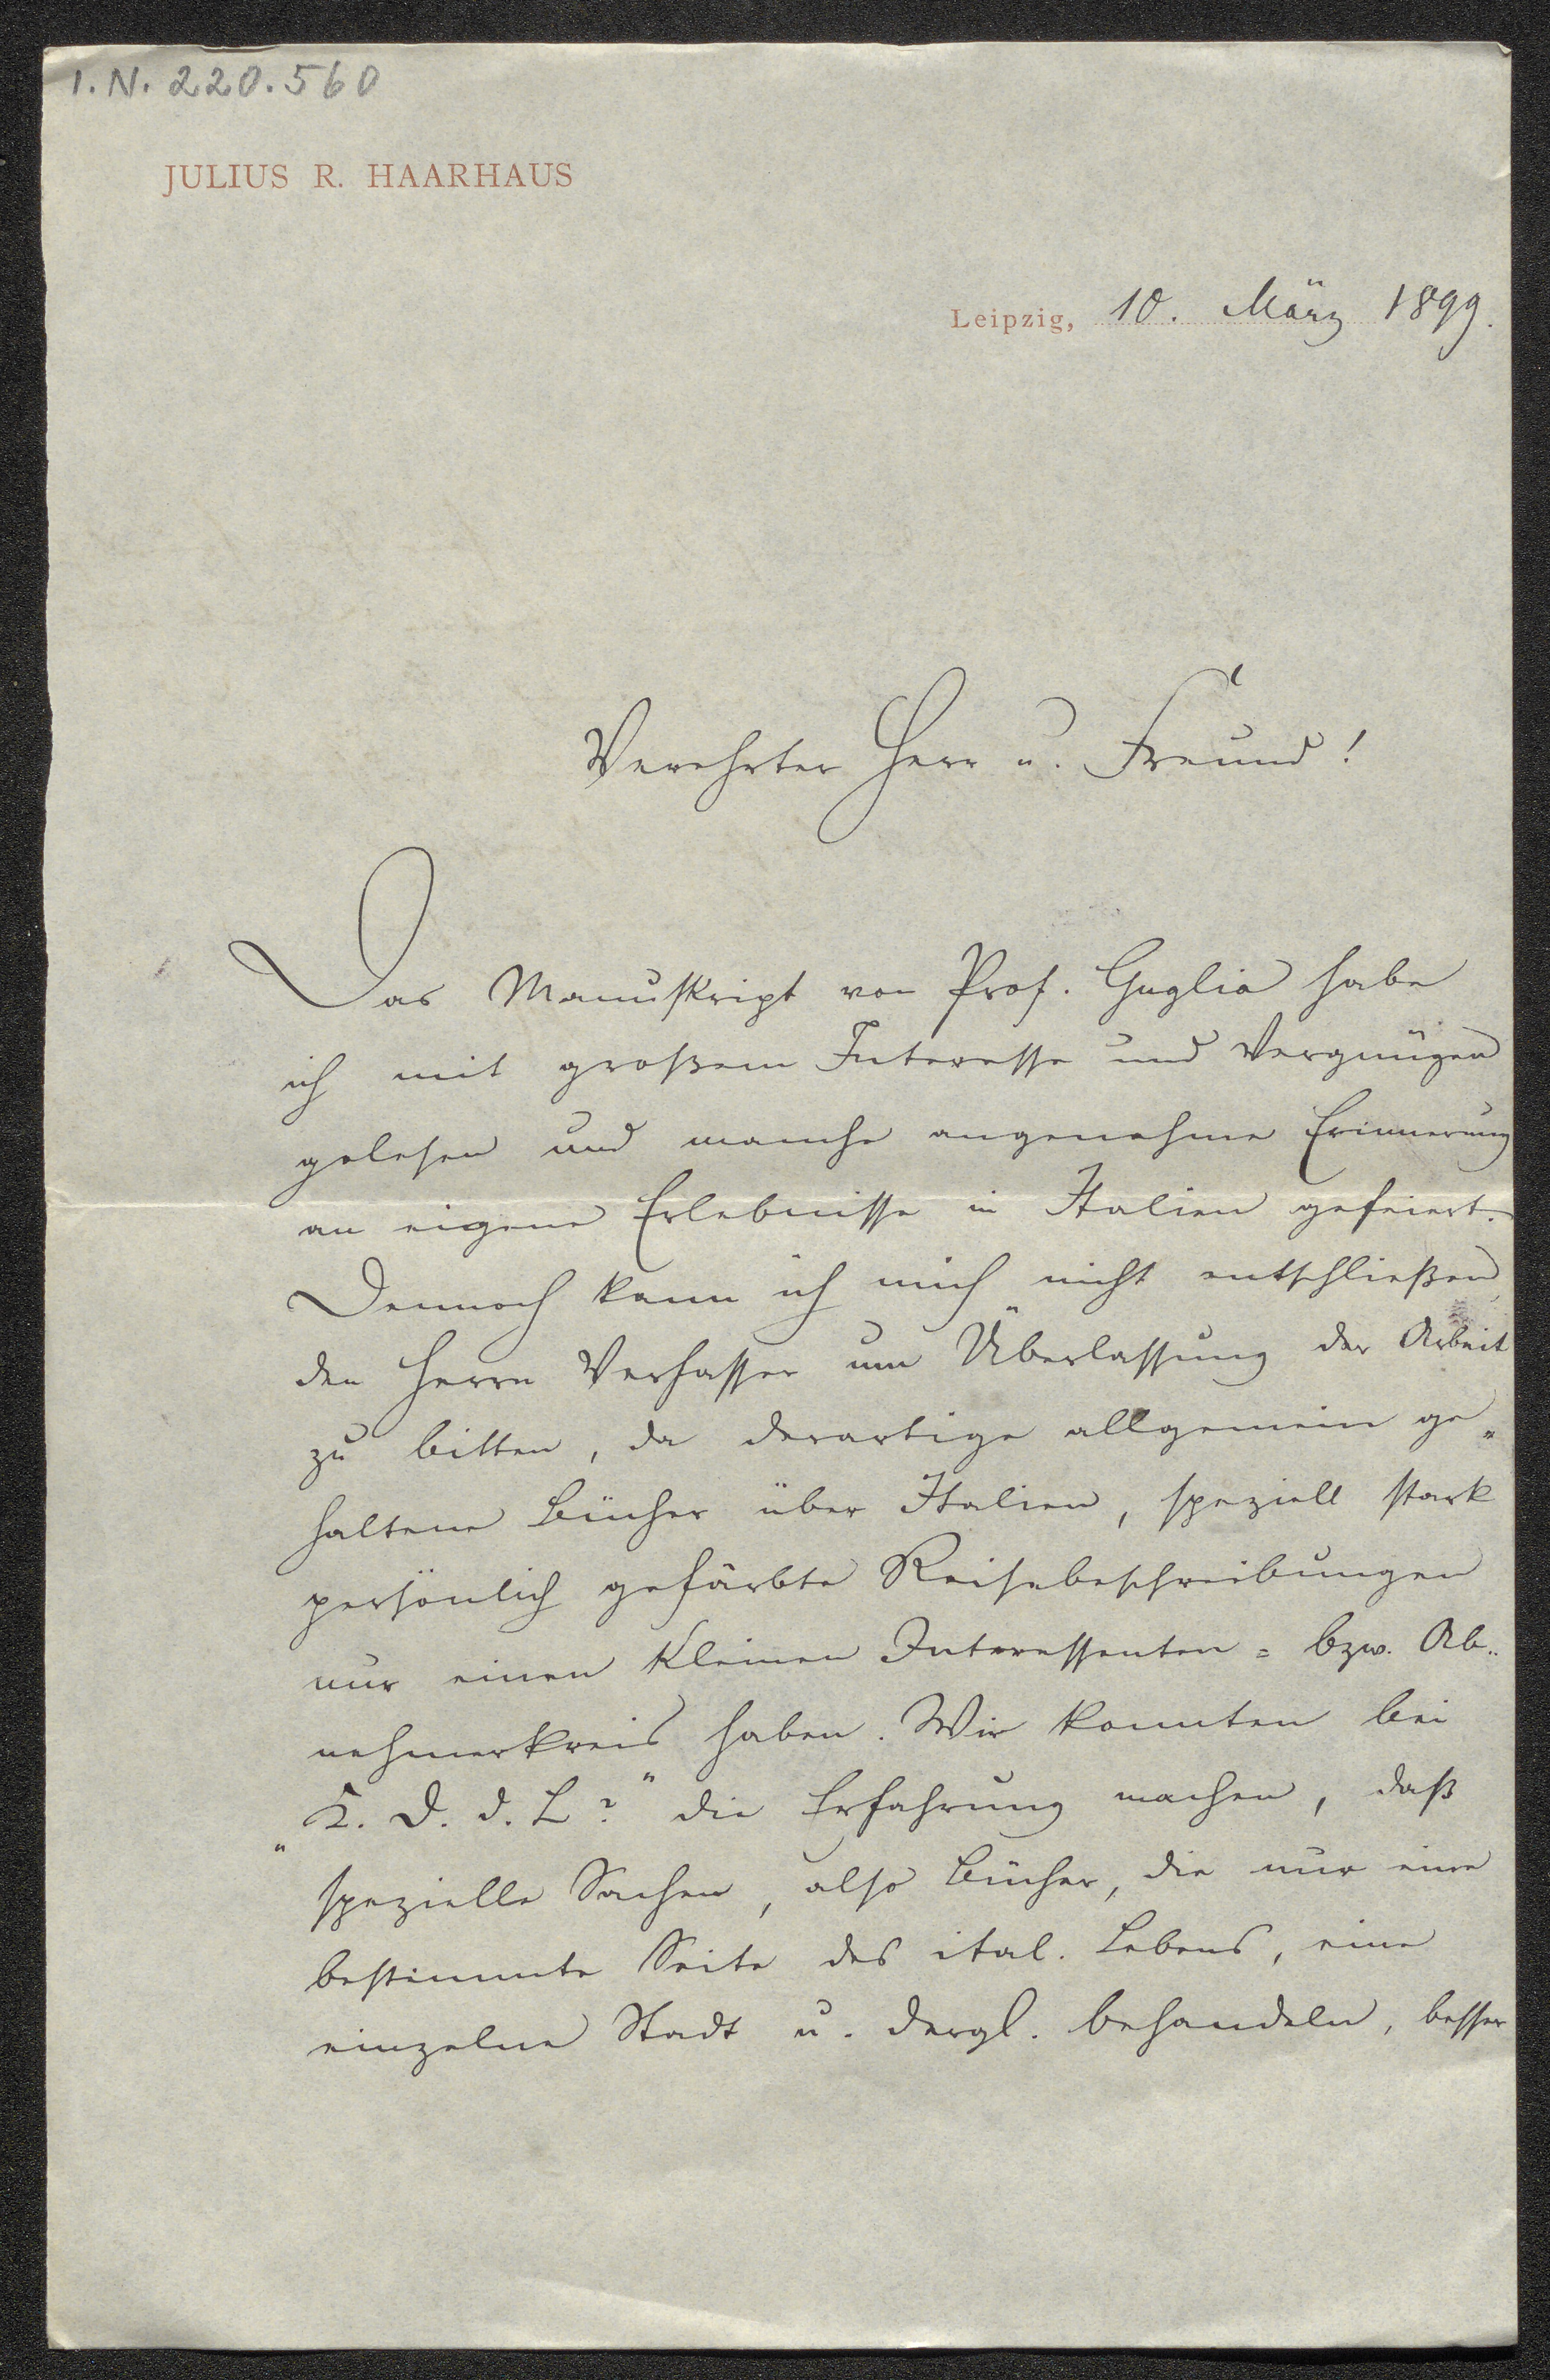 I.N. 220.560
JULIUS R. HAARHAUS
Leipzig, 10. März 1899.
Verehrter Herr u. Freund!
Das Manuskript von Prof. Guglia habe
ich mit großem Interesse und Vergnügen
gelesen und manche angenehme Erinnerung
an eigene Erlebnisse in Italien gefeiert.
Dennoch kann ich mich nicht entschließen,
den Herrn Verfasser um Überlassung der Arbeit
zu bitten, da derartige allgemein ge-
haltene Bücher über Italien, speziell stark
persönlich gefärbte Reisebeschreibungen
nur einen kleinen Interessenten- bzw. Ab-
nehmerkreis haben. Wir konnten bei
„K. D. d. L?“ die Erfahrung machen, daß
spezielle Sachen, also Bücher, die nur eine
bestimmte Seite des ital. Lebens, eine
einzelne Stadt u. dergl. behandeln, besser